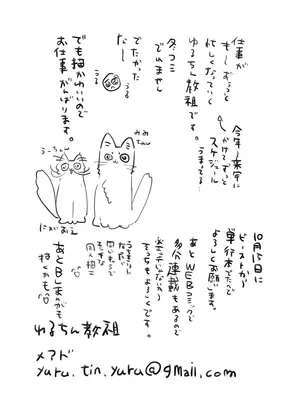 仕事が
もーじぇろっと
忙しくなっていく
ゆるちん教祖です。
今年〜来年に
かけてずっと
スケジュール
うまってる…
冬コミ
でれません
でたかった
なー
うる
うる
でも描かいいので
お仕事がんばります。
みみちゃん
うーちゃん
にがおえ
10月15日に
ビーストから
単行本でたので
よろしくお願いします。
あとWEBコミックで
多分連載もあるので
そっちもよろしくです。
うまうまに
同人招待
あとBLまんがも
描くかも
ゆるちん教祖
メアド
yuru.tin.yuru@gmail.com